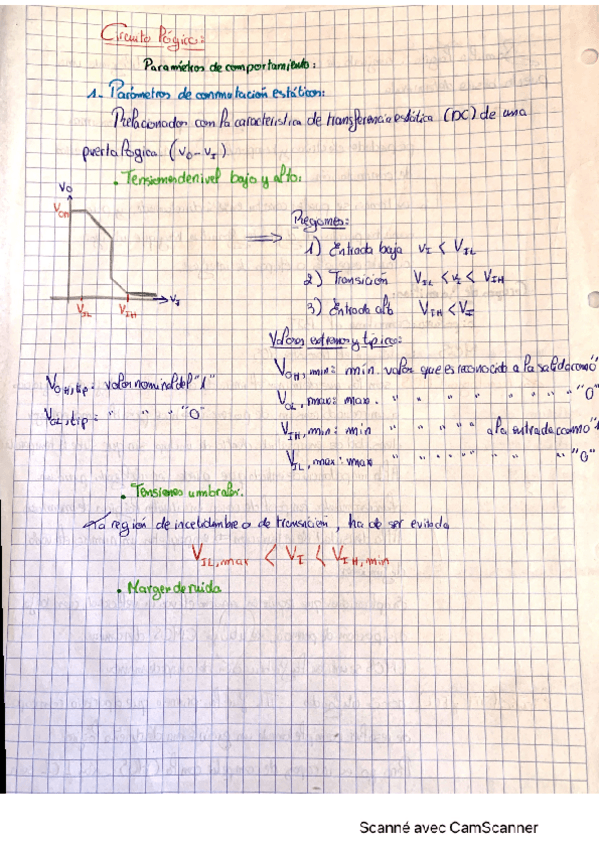 Circuito Lógico:
Parámetros de comportamiento:
1- Parámetros de conmutación estáticos:
Relacionados con la característica de transferencia estática (DC) de una
puerta lógica (Vo-VI)
• Tensiones de nivel bajo y alto:
Vo
VOH
VIL
VIH
VI
⇒ Regiones:
1) Entrada baja VI < VIL
2) Transición VIL < VI < VIH
3) Entrada alta VIH < VI
Valores extremos y típicos:
VOH,min: min. valor que es reconocido a la salida como "1"
VOL,max: max. " " " " " " " "0"
VIH,min: min " " " " a la entrada como "1"
VIL,max: max " " " " " " "0"
VOH,tip: valor nominal del "1"
VOL,tip: " " " "0"
• Tensiones umbrales.
La región de incertidumbre o de transición, ha de ser evitada
VIL,max < VI < VIH,min
• Margen de ruido
Scanné avec CamScanner